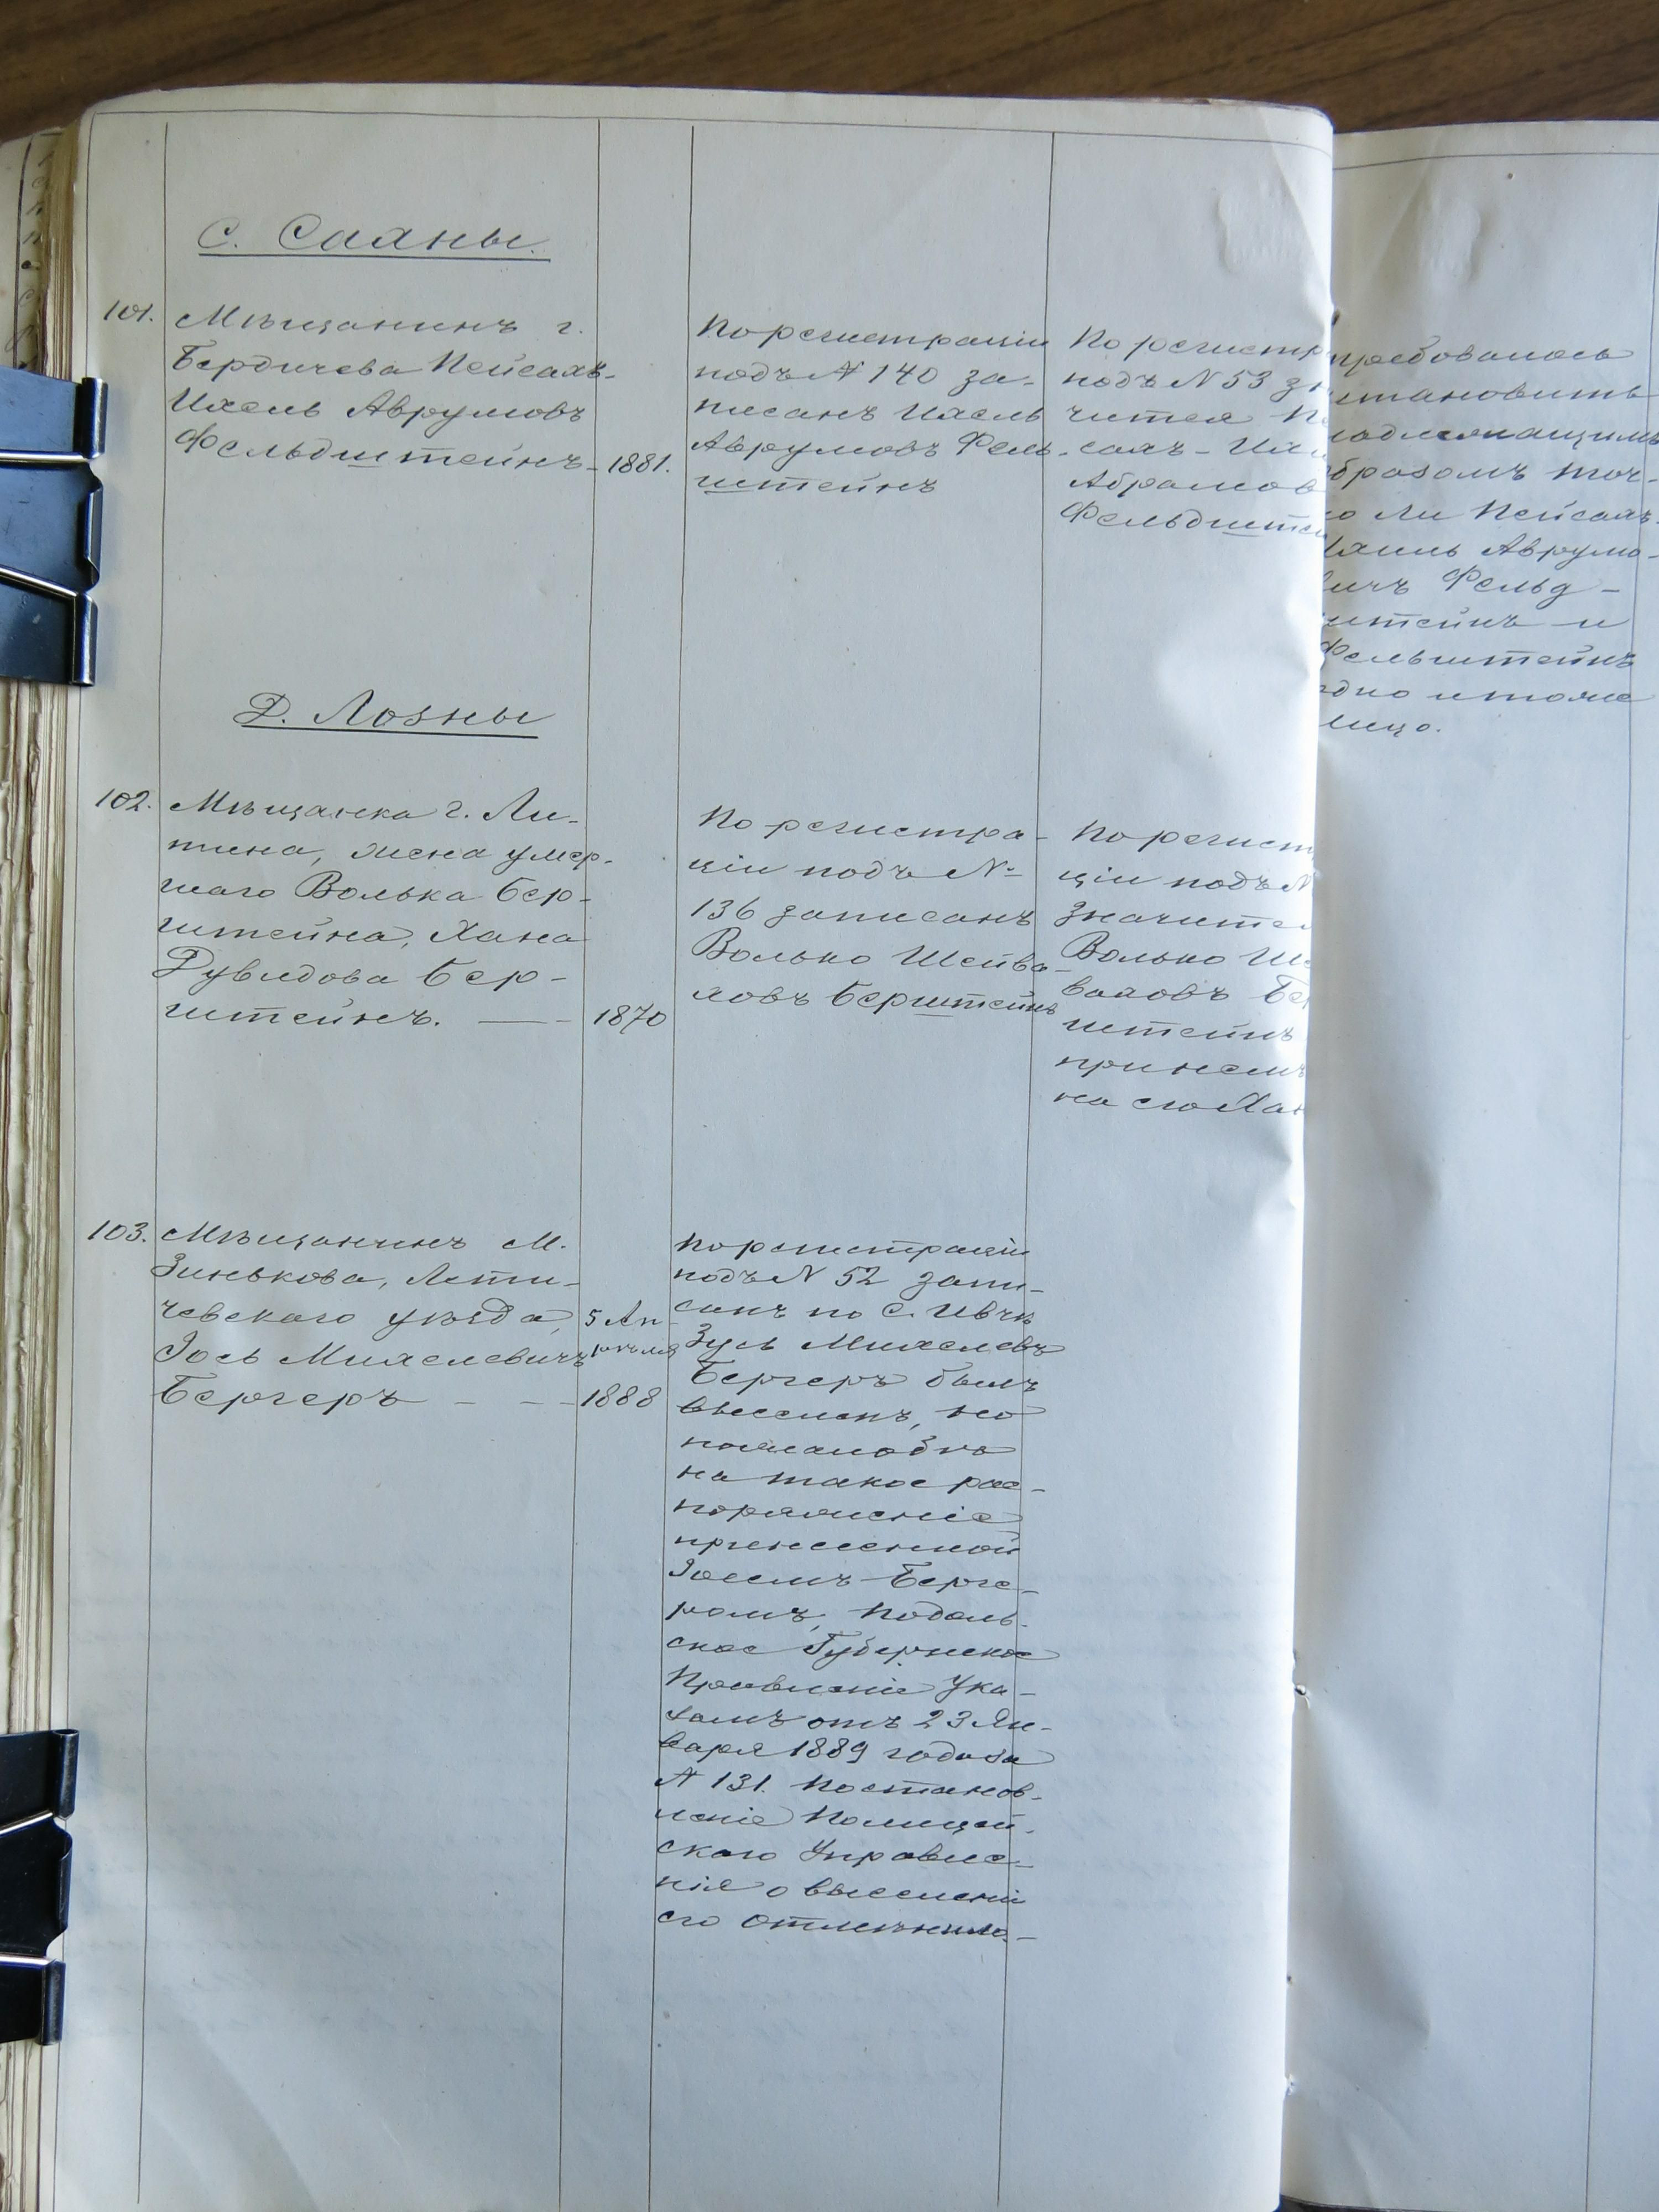 С. Саяны.
101.
Мѣщанинъ г.
Бердичева Пейсахъ-
Ихель Аврумовъ
Фельдштейнъ -
1881.
По регистраціи
подъ № 140 за-
писанъ Ихель
Аврумовъ Фель-
штейнъ
По регистр
подъ № 53 зн
чится Пе
сахъ-Их
Абрамов
Фельдште
требовалось
становить
надлежащимъ
бразомъ точ-
о ли Пейсахъ-
Ихиль Аврумо-
вичъ Фельд-
штейнъ и
Фельштейнъ
одно и тоже
лицо.
Д. Лозны
102.
Мѣщанка г. Ли-
тина, жена умер-
шаго Волька Бер-
штейна, Хана
Дувидова Бер-
штейнъ. —
1870
По регистра-
ціи подъ №
136 записанъ
Волько Шейва-
ховъ Берштейнъ
По регист
ціи подъ №
значитс
Волько Ше
ваховъ Бе
штейнъ
причемъ
на его Хан
103.
Мѣщанинъ м.
Зинькова, Лети-
чевскаго уѣзда,
Іось Михелевичъ
Бергеръ - - -
5 Ап-
рѣля
1888
По регистраціи
подъ № 52 запи-
санъ по с. Ивчѣ
Зусь Михелевъ
Бергеръ былъ
выселенъ, но
по жалобѣ
на такое рас-
поряженіе
принесенной
Іосемъ Берге-
ромъ, Подоль-
ское Губернское
Правленіе Ука-
замъ отъ 23 Ян-
варя 1889 года за
№ 131. постанов-
леніе Полицей-
скаго Управле-
нія о выселеніи
его отмѣнило. -